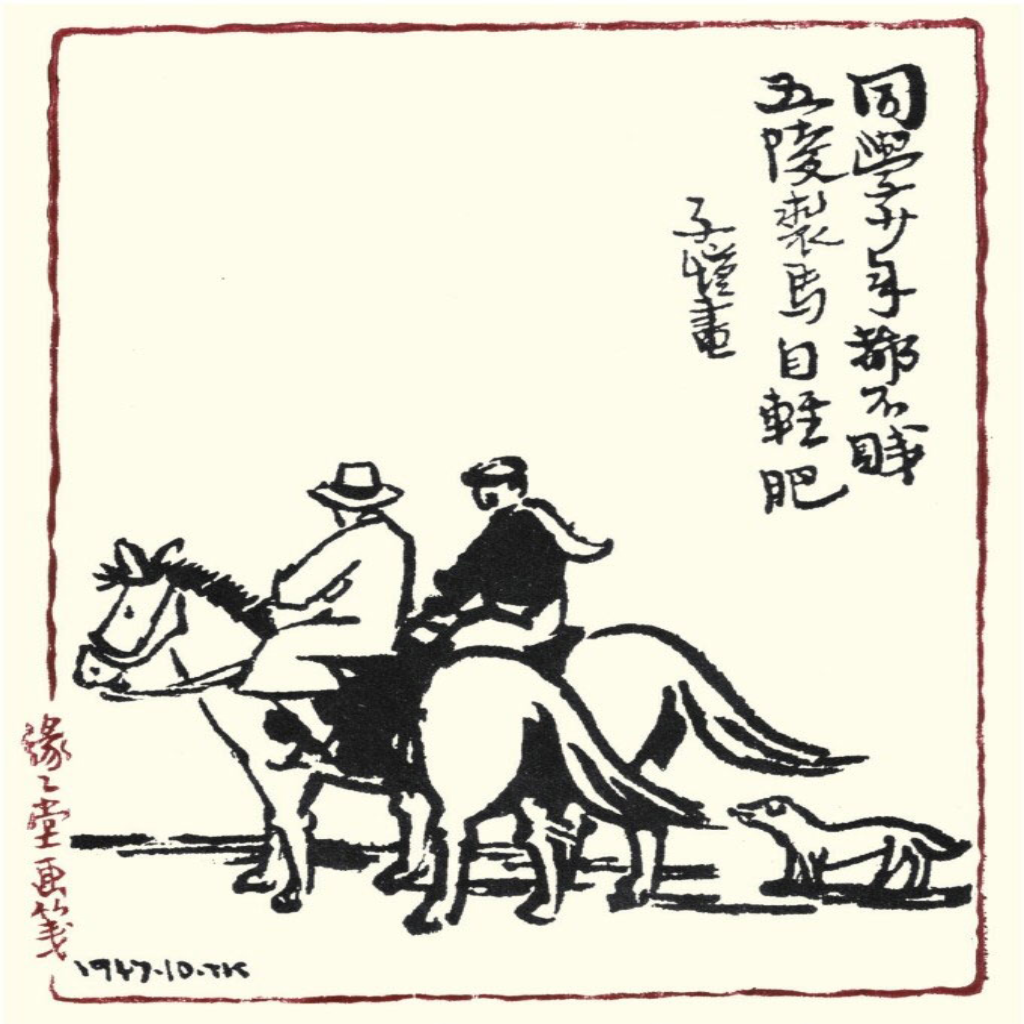 同學少年都不賤
五陵裘馬自輕肥
子愷畫
緣々堂画箋
1947.10.TK